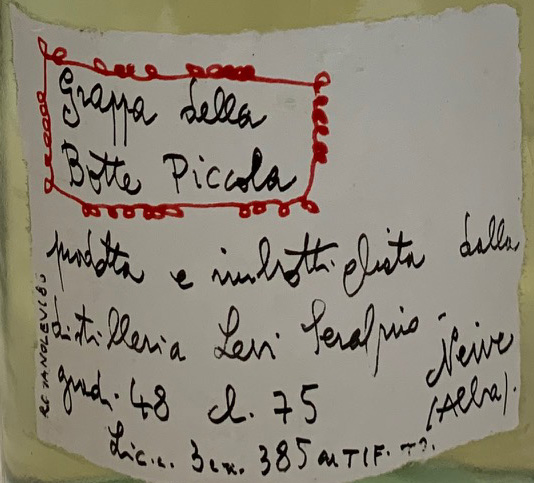 Grappa della
Botte Piccola
prodotta e imbottigliata dalla
distilleria Levi Serafino -
Neive
(Alba).
gradi. 48 cl. 75
Lic. 385